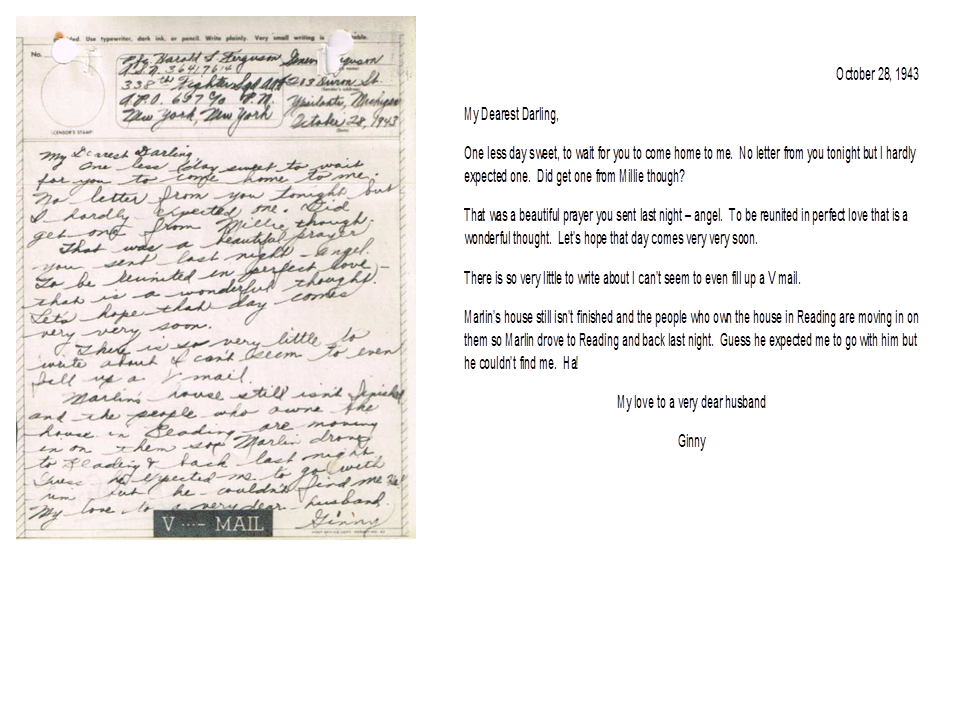 ded. Use typewriter, dark ink, or pencil. Write plainly. Very small writing is
No.
Pfc. Harold L Ferguson
338th Fighter Sqd
A.P.O. 637 c/o P.M.
New York, New York
Ypsilanti, Michigan
October 28, 1943
CENSOR'S STAMP
My Dearest Darling
One less day sweet to wait
for you to come home to me.
No letter from you tonight but
I hardly expected one. Did
get one from Millie though.
That was a beautiful prayer
you sent last night - angel.
To be reunited in perfect love -
that is a wonderful thought.
Let's hope that day comes
very very soon.
There is so very little to
write about I can't seem to even
fill up a V mail.
Marlin's house still isn't finished
and the people who owne the
house in Reading are moving
in on them so Marlin drove
to Reading & back last night
Guess he expected me to go with
him but he couldn't find me Ha!
My love to a very dear husband.
Ginny
V ...- MAIL
October 28, 1943
My Dearest Darling,
One less day sweet, to wait for you to come home to me. No letter from you tonight but I hardly
expected one. Did get one from Millie though?
That was a beautiful prayer you sent last night – angel. To be reunited in perfect love that is a
wonderful thought. Let's hope that day comes very very soon.
There is so very little to write about I can't seem to even fill up a V mail.
Marlin's house still isn't finished and the people who own the house in Reading are moving in on
them so Marlin drove to Reading and back last night. Guess he expected me to go with him but
he couldn't find me. Ha!
My love to a very dear husband
Ginny